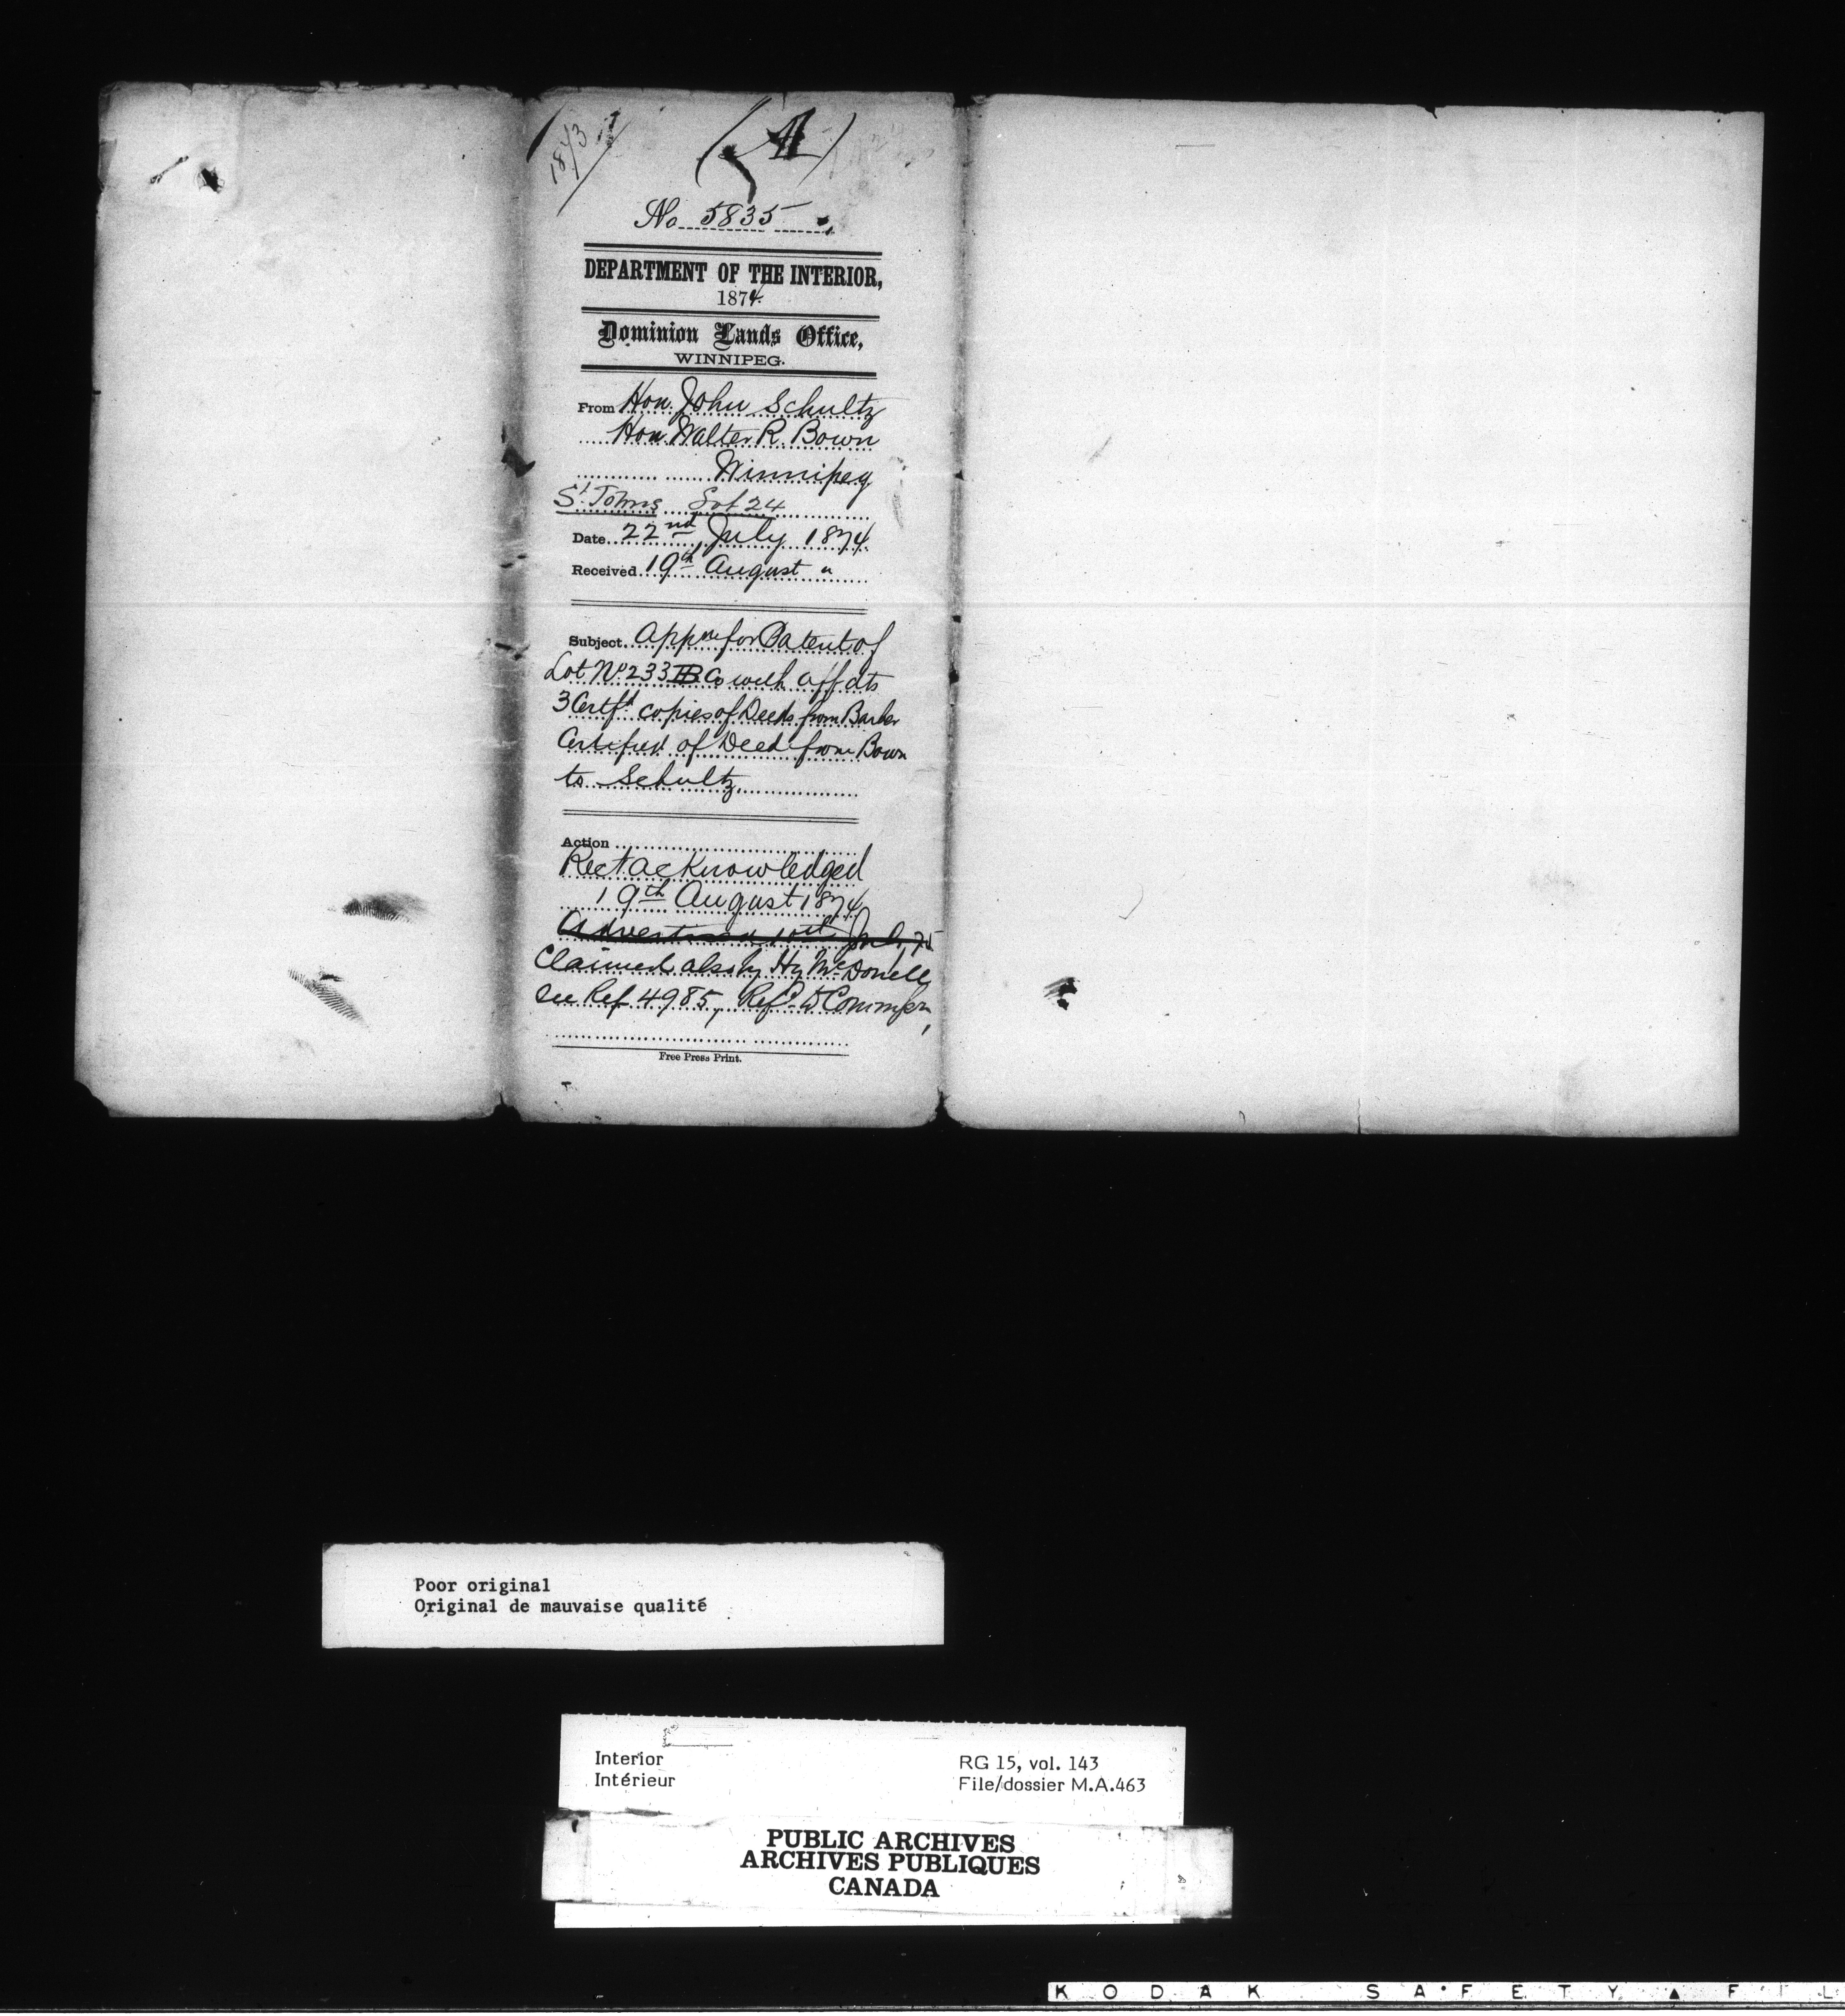 (A)
No 5835
DEPARTMENT OF THE INTERIOR,
1874
Dominion Lands Office,
WINNIPEG.
From Hon. John Schultz
Hon. Walter R. Bown
Winnipeg
St Johns Lot 24
Date 22nd July 1874
Received 19th August "
Subject Appn for Patent of
Lot No 233 HB Co with affdts
3 Certfd copies of Deeds from Barber
Certified of Deed from Bown
to Schultz
Action
Rect acknowledged
19th August 1874
Advertised 10th July 75
Claimed also by Hy McDonell
See Ref 4985, Refd to Commsr
Free Press Print.
Poor original
Original de mauvaise qualité
Interior
Intérieur
RG 15, vol. 143
File/dossier M.A.463
PUBLIC ARCHIVES
ARCHIVES PUBLIQUES
CANADA
KODAK SAFETY FIL